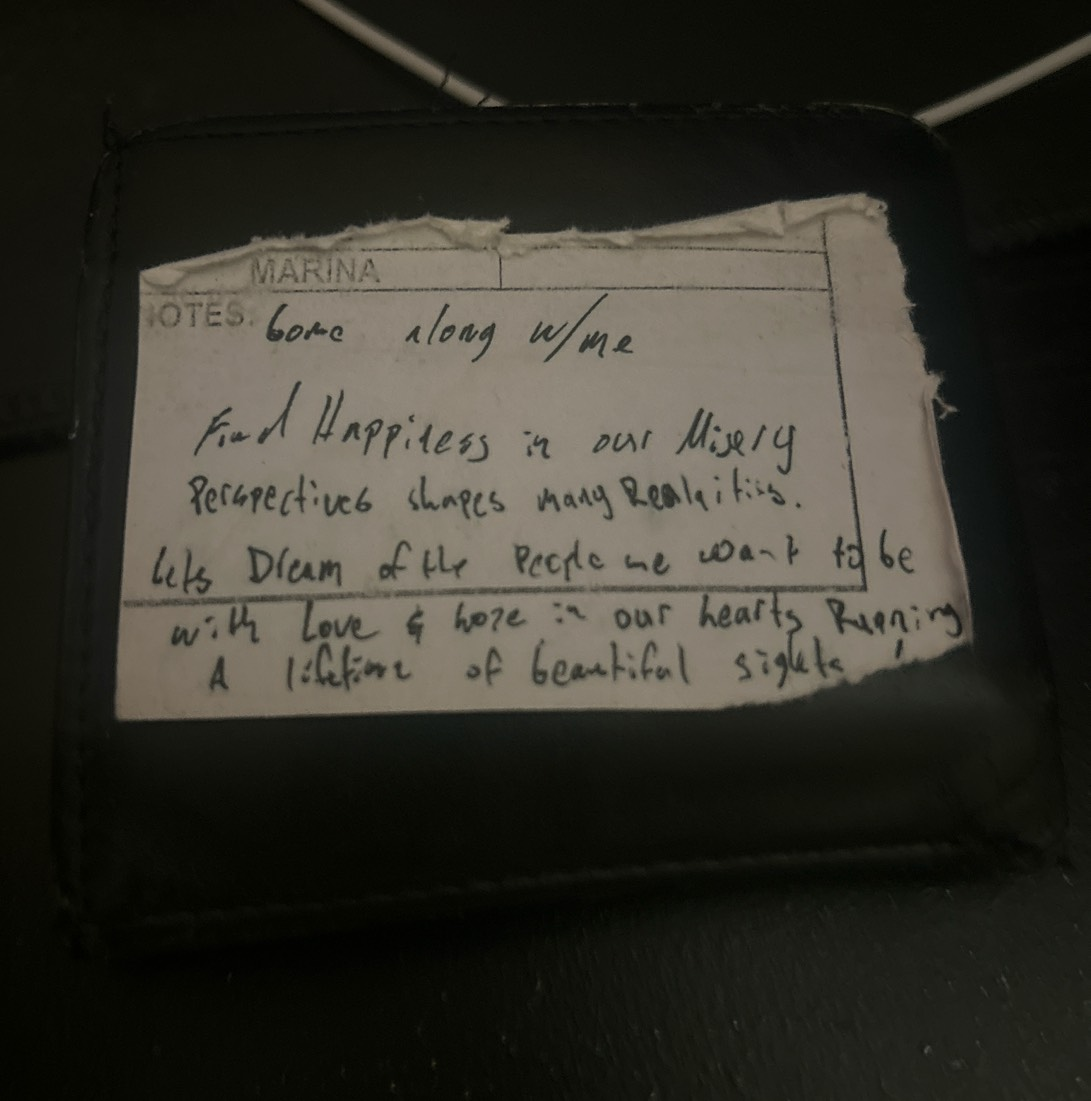 MARINA
NOTES: Come along w/me
Find Happiness in our Misery
Perspectives shapes many Realaities.
lets Dream of the People we want to be
with Love & hope in our hearts Running
A lifetime of beautiful sights